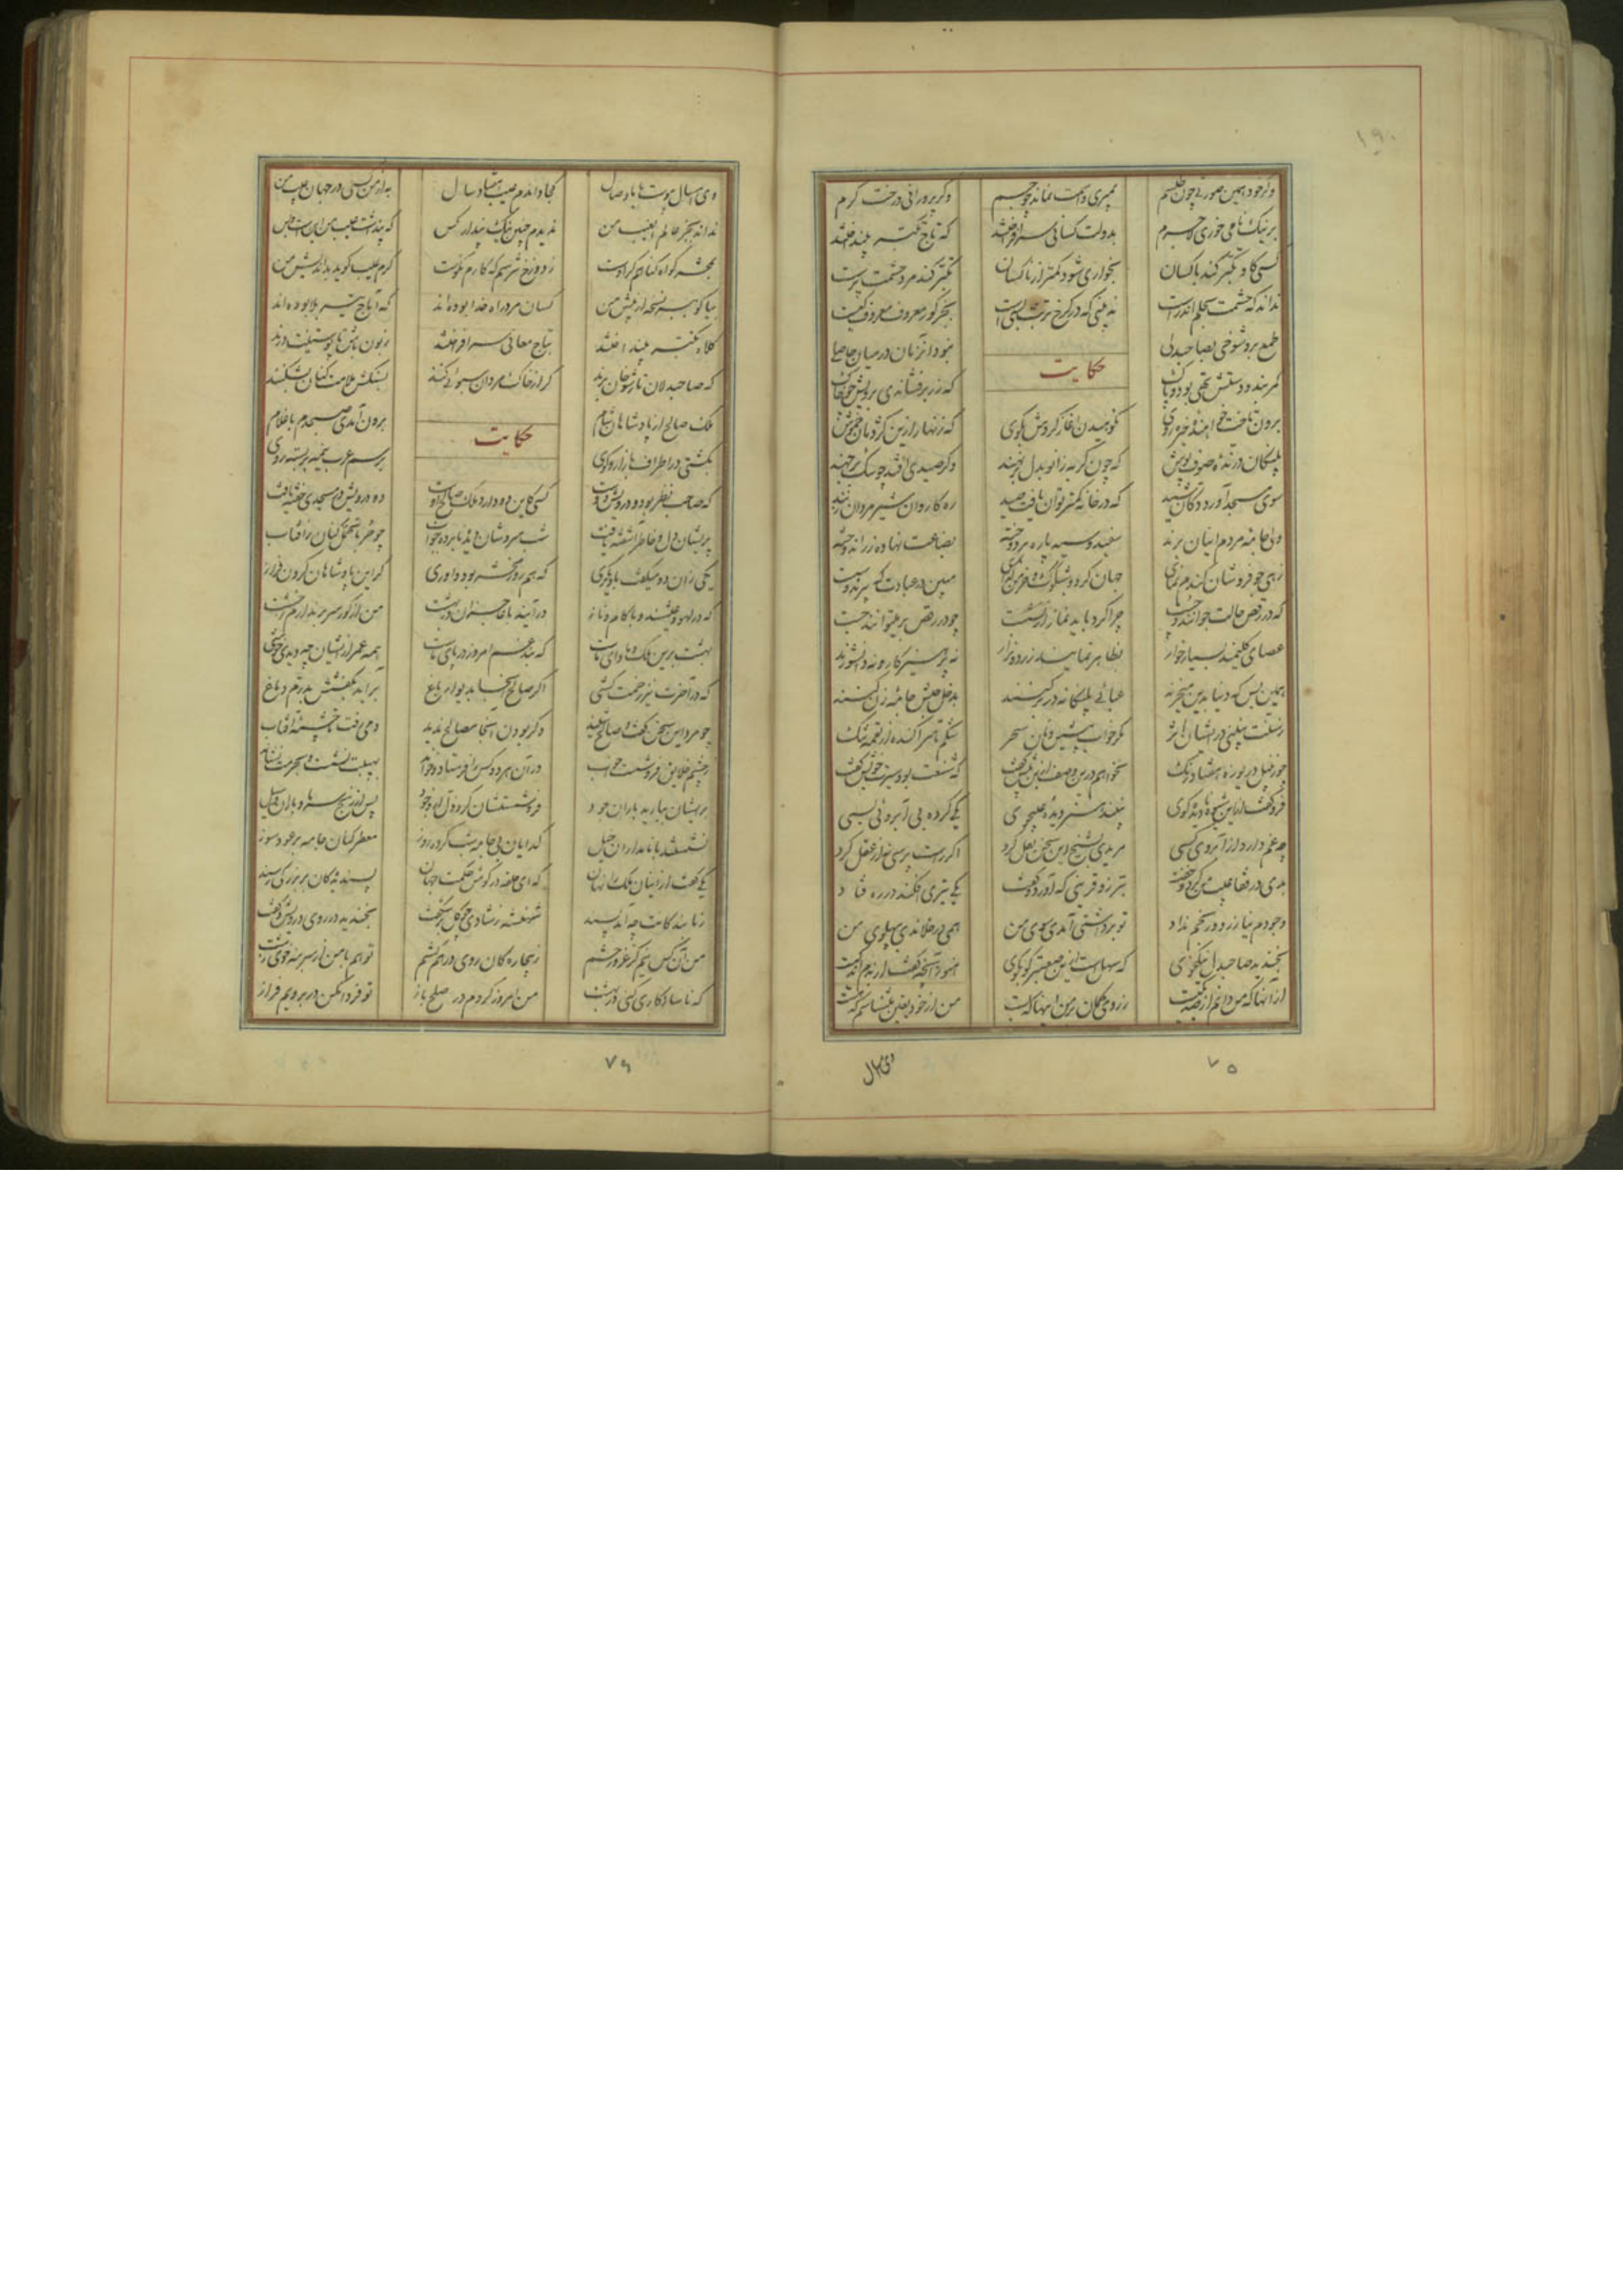 وگر خود همین صورتی چون طلسم بمیری و اسمت نماند چو جسم وگر پرورانی درخت کرم
بر نیک نامی خوری لاجرم بدولت کسانی سر افراختند که تاج تکبر بینداختند
کسی کاو تکبر کند با کسان بخواری شود کمتر از ناکسان تکبر کند مرد حشمت پرست
نداند که حشمت بحلم اندر است نه بینی که در کرخ تربت بسی است بجز گور معروف معروف نیست
طمع برد شوخی بصاحبدلی نبود آنزمان در میان حاصلی
حکایت
کمربند و دستش تهی بود و پاک که زر برفشاندی برویش چو خاک
برون تاخت خواهنده خیره روی نکوهیدن آغاز کردش بکوی که زنهار ازین کژدمان خموش
پلنگان درنده صوف پوش که چون گربه زانو بدل برنهند وگر صیدی افتد چو سگ برجهند
سوی مسجد آورده دکان شید که در خانه کمتر توان یافت صید ره کاروان شیر مردان زنند
ولی جامه مردم اینان برند سفید و سیه پاره بردوخته بضاعت نهاده زر اندوخته
زهی جو فروشان گندم نمای جهان گرد و شبکوک و خرمن گدای مبین در عبادت که پیرند و سست
که در رقص حالت جوانند و چست چرا کرد باید نماز از نشست چو در رقص بر میتوانند جست
عصای کلیمند بسیار خوار بظاهر نمایند زرد و نزار نه پرهیزکار و نه دانشورند
همین بس که دنیا بدین میخرند عبائی پلنگانه در بر کنند بدخل حبش جامه زن کنند
ز سنت نبینی در ایشان اثر مگر خواب پیشین و نان سحر شکم تا سر آکنده از لقمه تنگ
چو زنبیل دریوزه هفتاد رنگ نخواهم درین وصف ازین بیش گفت که شنعت بود سیرت خویش گفت
فرو گفت ازین شیوه نادیده گوی نبیند هنر دیده عیبجوی یکی کرده بی آبروئی بسی
چه غم دارد از آبروی کسی مریدی بشیخ این سخن نقل کرد اگر راست پرسی نه از عقل کرد
بدی در قفا عیب من کرد و خفت بتر زو قرینی که آورد و گفت یکی تیری افکند و در ره فتاد
وجودم نیازرد و رنجم نداد تو برداشتی آمدی سوی من همی در خلاندی بپهلوی من
بخندید صاحبدل نیکخوی که سهل است ازین صعبتر گو بگوی هنوز آنچه گفت از بدم اندکیست
از آنها که من دانم از صد یکیست ز روی گمان بر من اینها که بست من از خود یقین میشناسم که هست
۷۵
وی امسال
وی امسال پیوست با ما وصال کجا داندم عیب هفتاد سال به از من کسی در جهان عیب من
نداند بجز عالم الغیب من ندیدم چنین نیک پندار کس که پنداشت عیب من این است و بس
بمحشر گواه گناهم گر اوست ز دوزخ نترسم که کارم نکوست گرم عیب گوید بد اندیش من
بیا گو ببر نسخه از پیش من کسان مرد راه خدا بوده اند که آماج تیر بلا بوده اند
کلاه تکبر بینداختند بتاج معانی سر افراختند زبون باش تا پوستینت درند
که صاحبدلان بار شوخان برند گر از خاک مردان سبوئی کنند بسنگش ملامت کنان بشکنند
ملک صالح از پادشاهان شام برون آمدی صبحدم با غلام
حکایت
بگشتی در اطراف بازار و کوی برسم عرب نیمه بر بسته روی
که صاحب نظر بود و درویش دوست کسی کاین دو دارد ملک صالح اوست دو درویش در مسجدی خفته یافت
پریشان دل و خاطر آشفته یافت شب سردشان دیده نابرده خواب چو حربا تامل کنان ز آفتاب
یکی زان دو میگفت با دیگری که هم روز محشر بود داوری گر این پادشاهان گردن فراز
که در لهو و عیشند و با کام و ناز در آیند با عاجزان در بهشت من از گور سر برندارم ز خشت
بهشت برین ملک و ماوای ماست که بند غم امروز در پای ماست همه عمر از ایشان چه دیدی خوشی
که در آخرت نیز زحمت کشی اگر صالح آنجا بدیوار باغ بر آید بکفشش بدرم دماغ
چو مرد این سخن گفت و صالح شنید دگر بودن آنجا مصالح ندید دمی رفت تا چشمه آفتاب
ز چشم خلایق فرو شست خواب دوان هر دو کس را فرستاد و خواند بهیبت نشست و بحرمت نشاند
بر ایشان ببارید باران جود فرو شستشان گرد ذل از وجود پس از رنج سرما و باران و سیل
نشستند با نامداران خیل گدایان بی جامه شب کرده روز معطر کنان جامه بر عود سوز
یکی گفت از اینان ملک را نهان که ای حلقه در گوش حکمت جهان پسندیدگان در بزرگی رسند
ز ما بندگانت چه آمد پسند شهنشه ز شادی چو گل بر شکفت بخندید در روی درویش و گفت
من آن کس نیم کز غرور حشم ز بیچارگان روی در هم کشم تو هم با من از سر بنه خوی زشت
که ناسازگاری کنی در بهشت من امروز کردم در صلح باز تو فردا مکن در برویم فراز
۷۶